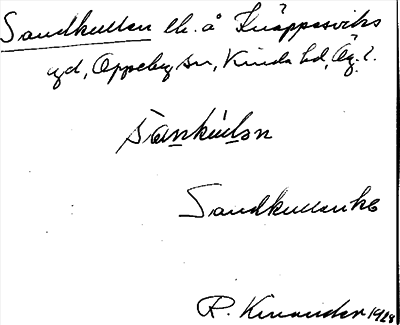 Sandkullen lh. å Knäppesviks
gd, Oppeby sn, Kinda hd, Ög. l.
sanku̇lsn
Sandkullen hs
R. Kinander 1928